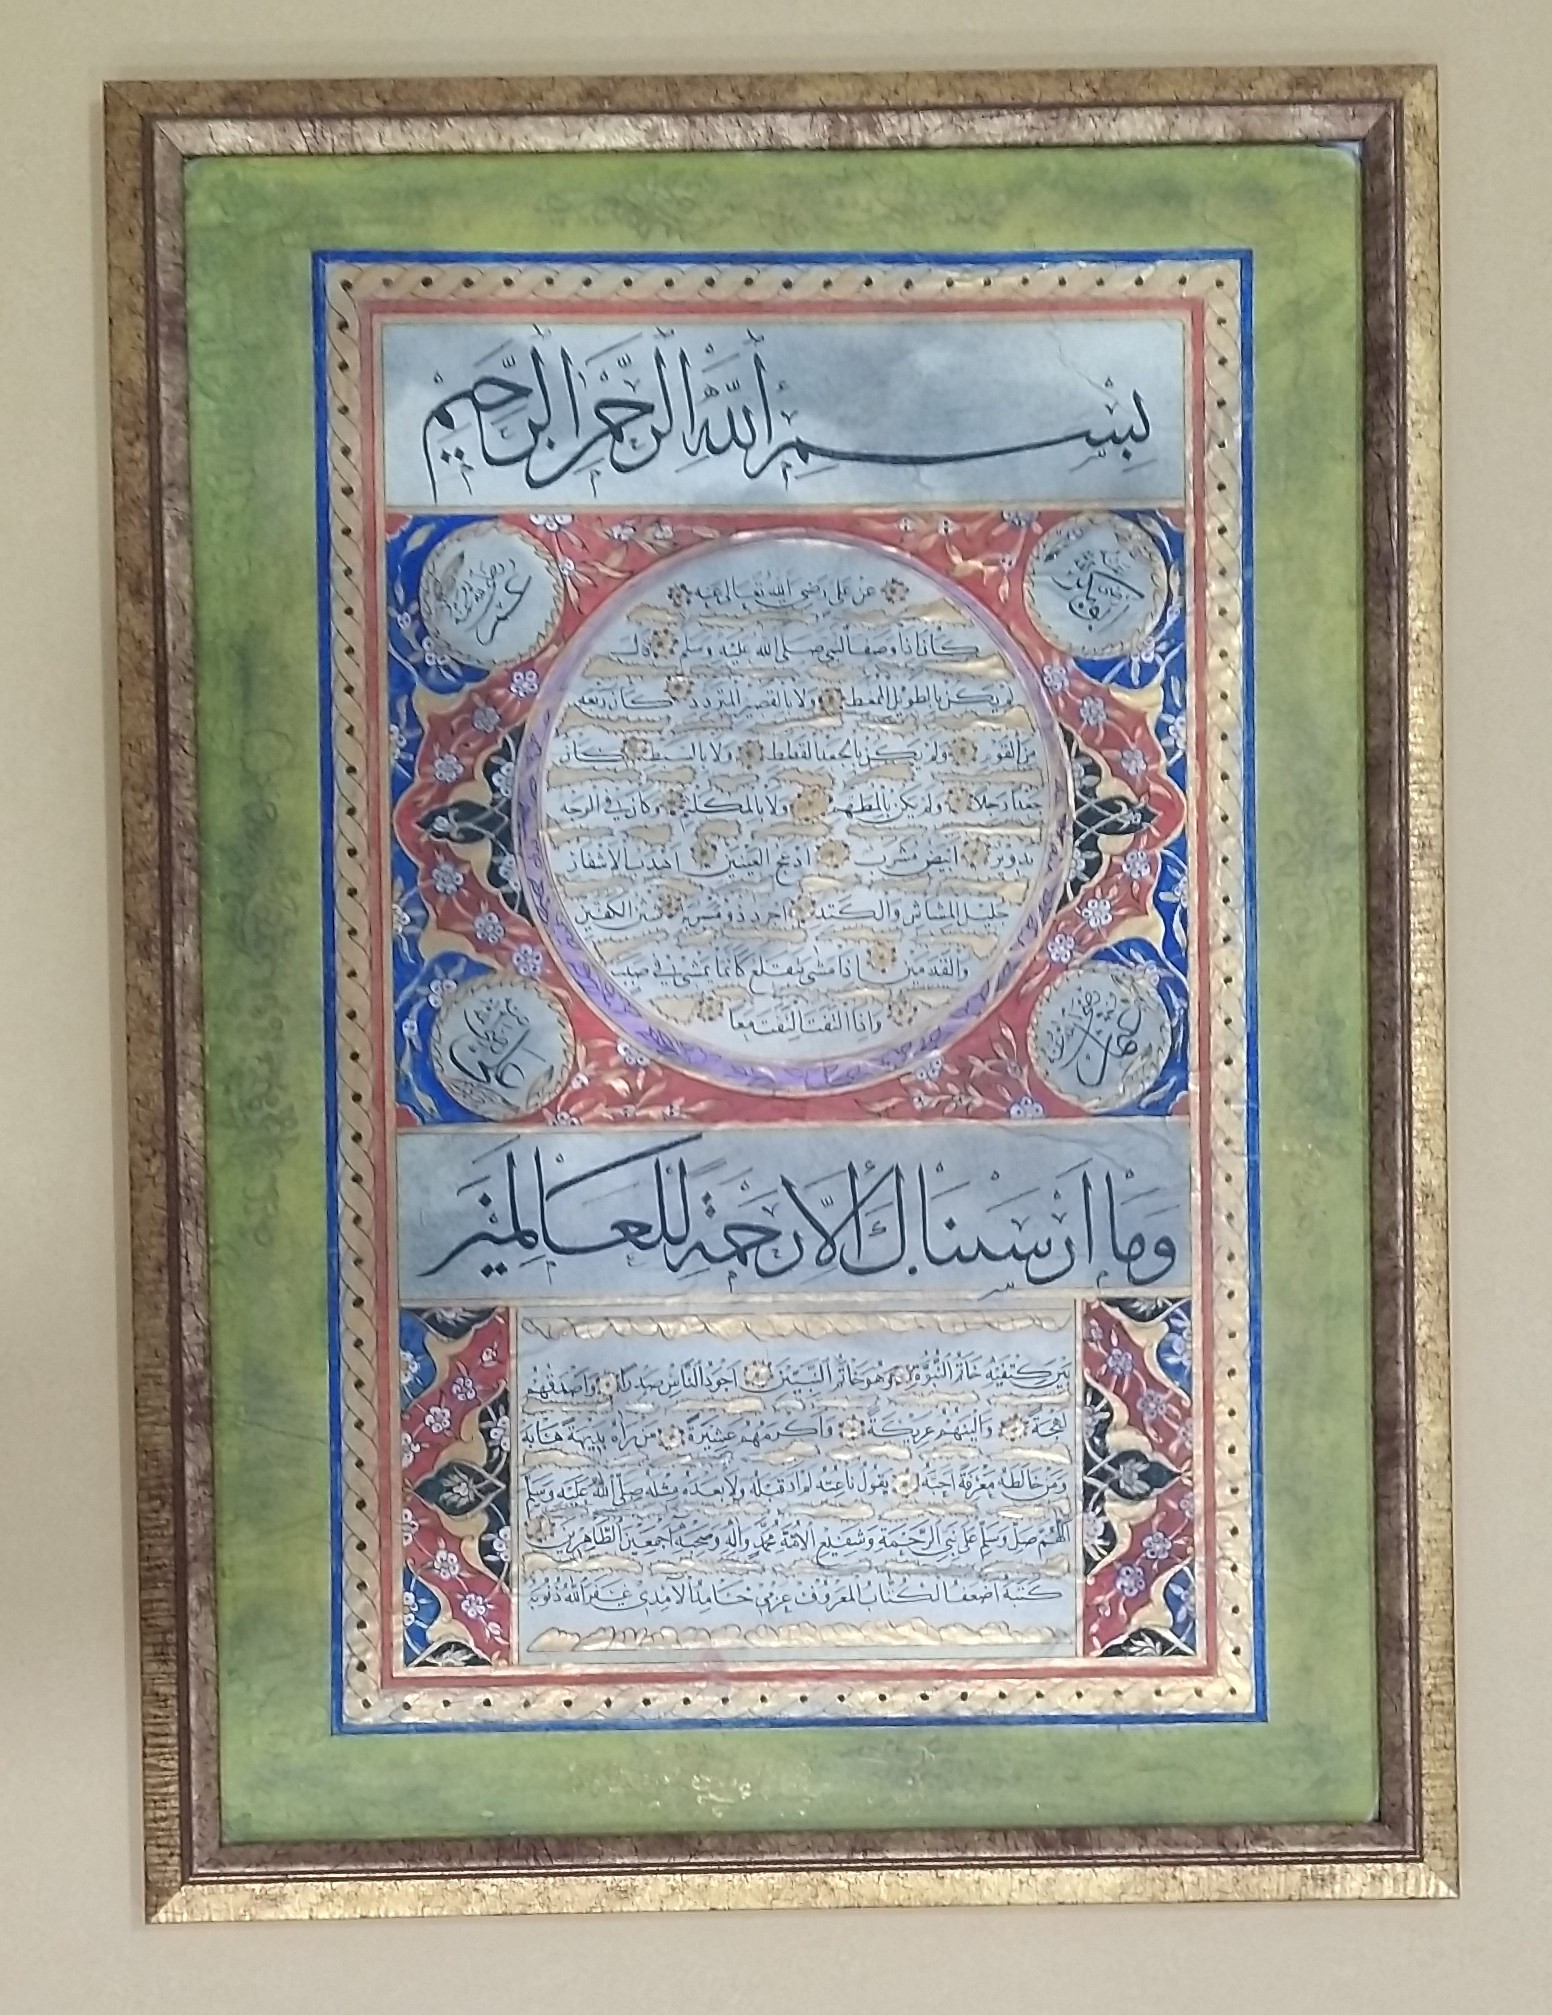 بِسْمِ اللّٰهِ الرَّحْمٰنِ الرَّحِيمِ
ابو بكر رضي الله عنه
عمر رضي الله عنه
عن علي رضي الله تعالى عنه
كان اذا وصف النبي صلى الله عليه وسلم قال
لم يكن بالطويل الممغط ولا بالقصير المتردد كان ربعة
من القوم ولم يكن بالجعد القطط ولا بالسبط كان
جعدا رجلا ولم يكن بالمطهم ولا بالمكلثم وكان في الوجه
تدوير ابيض مشرب ادعج العينين اهدب الاشفار
جليل المشاش والكتد اجرد ذو مسربة شثن الكفين
والقدمين اذا مشى يتقلع كانما يمشي في صبب
واذا التفت التفت معا
عثمان رضي الله عنه
علي رضي الله عنه
وَمَا اَرْسَلْنَاكَ اِلَّا رَحْمَةً لِلْعَالَمِينَ
بين كتفيه خاتم النبوة وهو خاتم النبيين اجود الناس صدرا واصدقهم
لهجة والينهم عريكة واكرمهم عشيرة من راه بديهة هابه
ومن خالطه معرفة احبه يقول ناعته لم ار قبله ولا بعده مثله صلى الله عليه وسلم
اللهم صل وسلم على نبي الرحمة وشفيع الامة محمد واله وصحبه اجمعين الطاهرين
كتبه اضعف الكتاب المعروف عزمي حامد الآمدي غفر الله ذنوبه